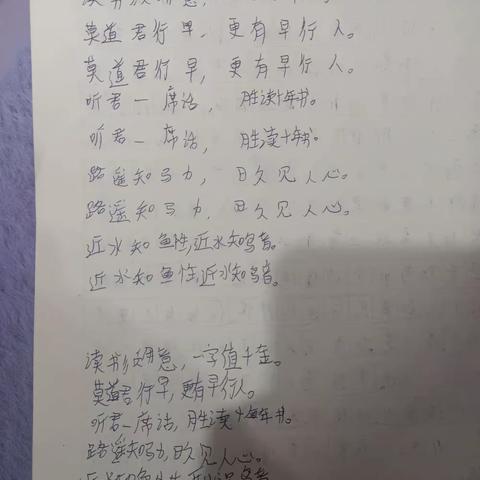 读书须用意，
莫道君行早，更有早行人。
莫道君行早，更有早行人。
听君一席话，胜读十年书。
听君一席话，胜读十年书。
路遥知马力，日久见人心。
路遥知马力，日久见人心。
近水知鱼性，近水知鸟音。
近水知鱼性，近水知鸟音。
读书须用意，一字值千金。
莫道君行早，更有早行人。
听君一席话，胜读十年书。
路遥知马力，日久见人心。